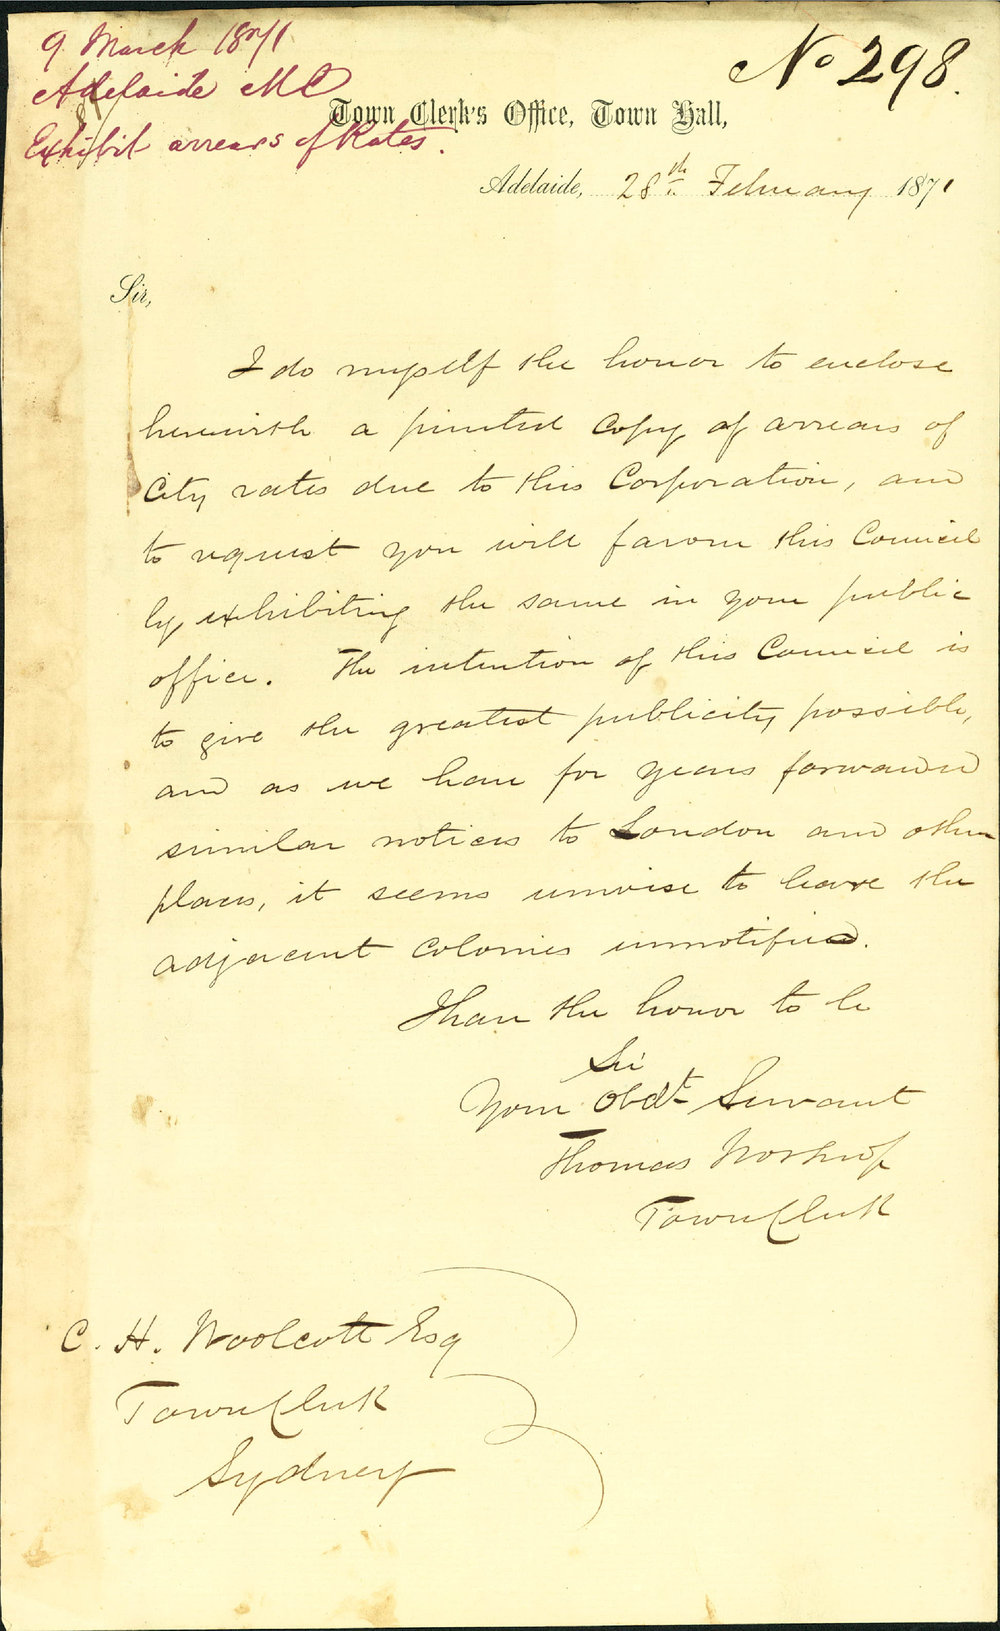 9 March 1871
Adelaide MC
Exhibit arrears of Rates.
No 298.
Town Clerk's Office, Town Hall,
Adelaide, 28th February 1871
Sir,
I do myself the honor to enclose
herewith a printed copy of arrears of
City rates due to this Corporation, and
to request you will favour this Council
by exhibiting the same in your public
office. The intention of this Council is
to give the greatest publicity possible,
and as we have for years forwarded
similar notices to London and other
places, it seems unwise to leave the
adjacent colonies unnotified.
I have the honor to be
Sir
Your Obdt Servant
Thomas Worsnop
Town Clerk
C. H. Woolcott Esq
Town Clerk
Sydney